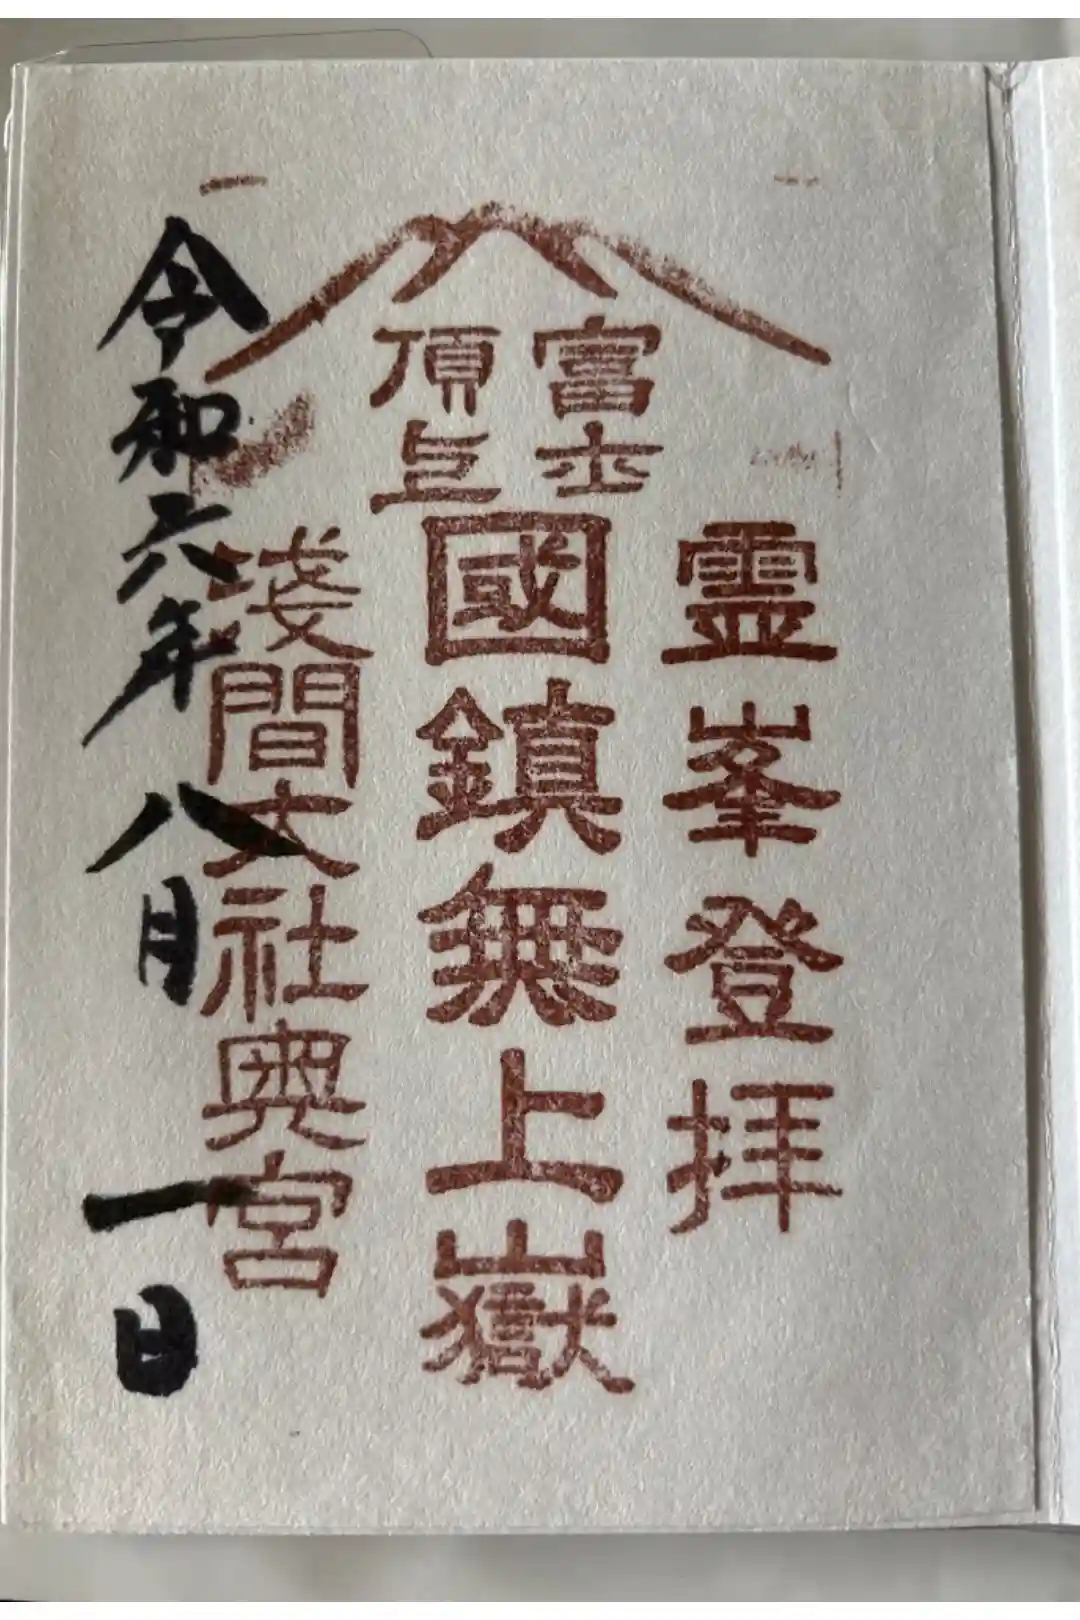 富士
頂上
霊峯登拝
國鎮無上嶽
淺間大社奥宮
令和六年八月一日